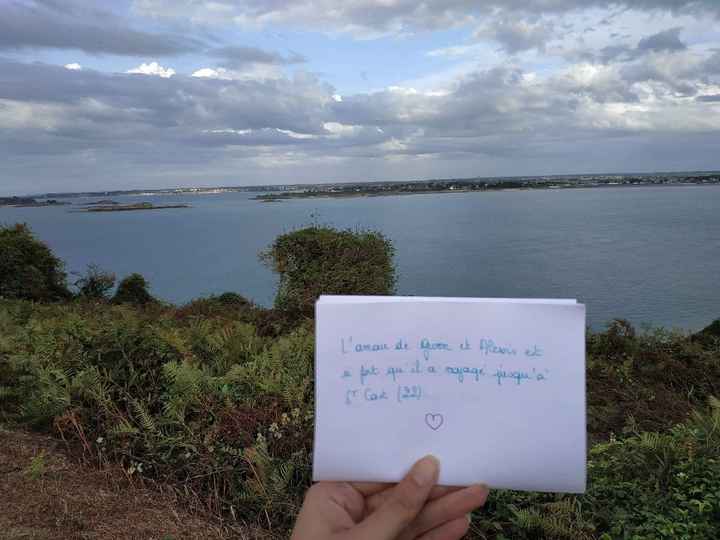 L'amour de et Alexis est
si fort qu'il a voyagé jusqu'à
St Cast (22)